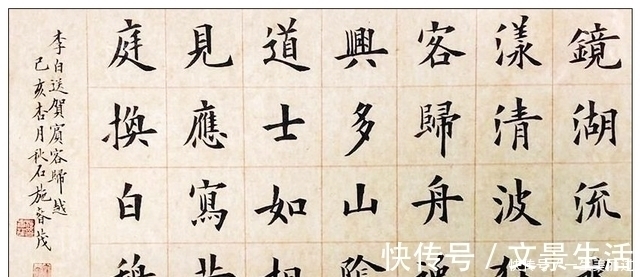 鏡湖流
漾清波
客歸舟
興多山陰
道士如相
見應寫
庭換白
李白送賀賓客歸越
己亥杏月秋石施
快传号／文景生活